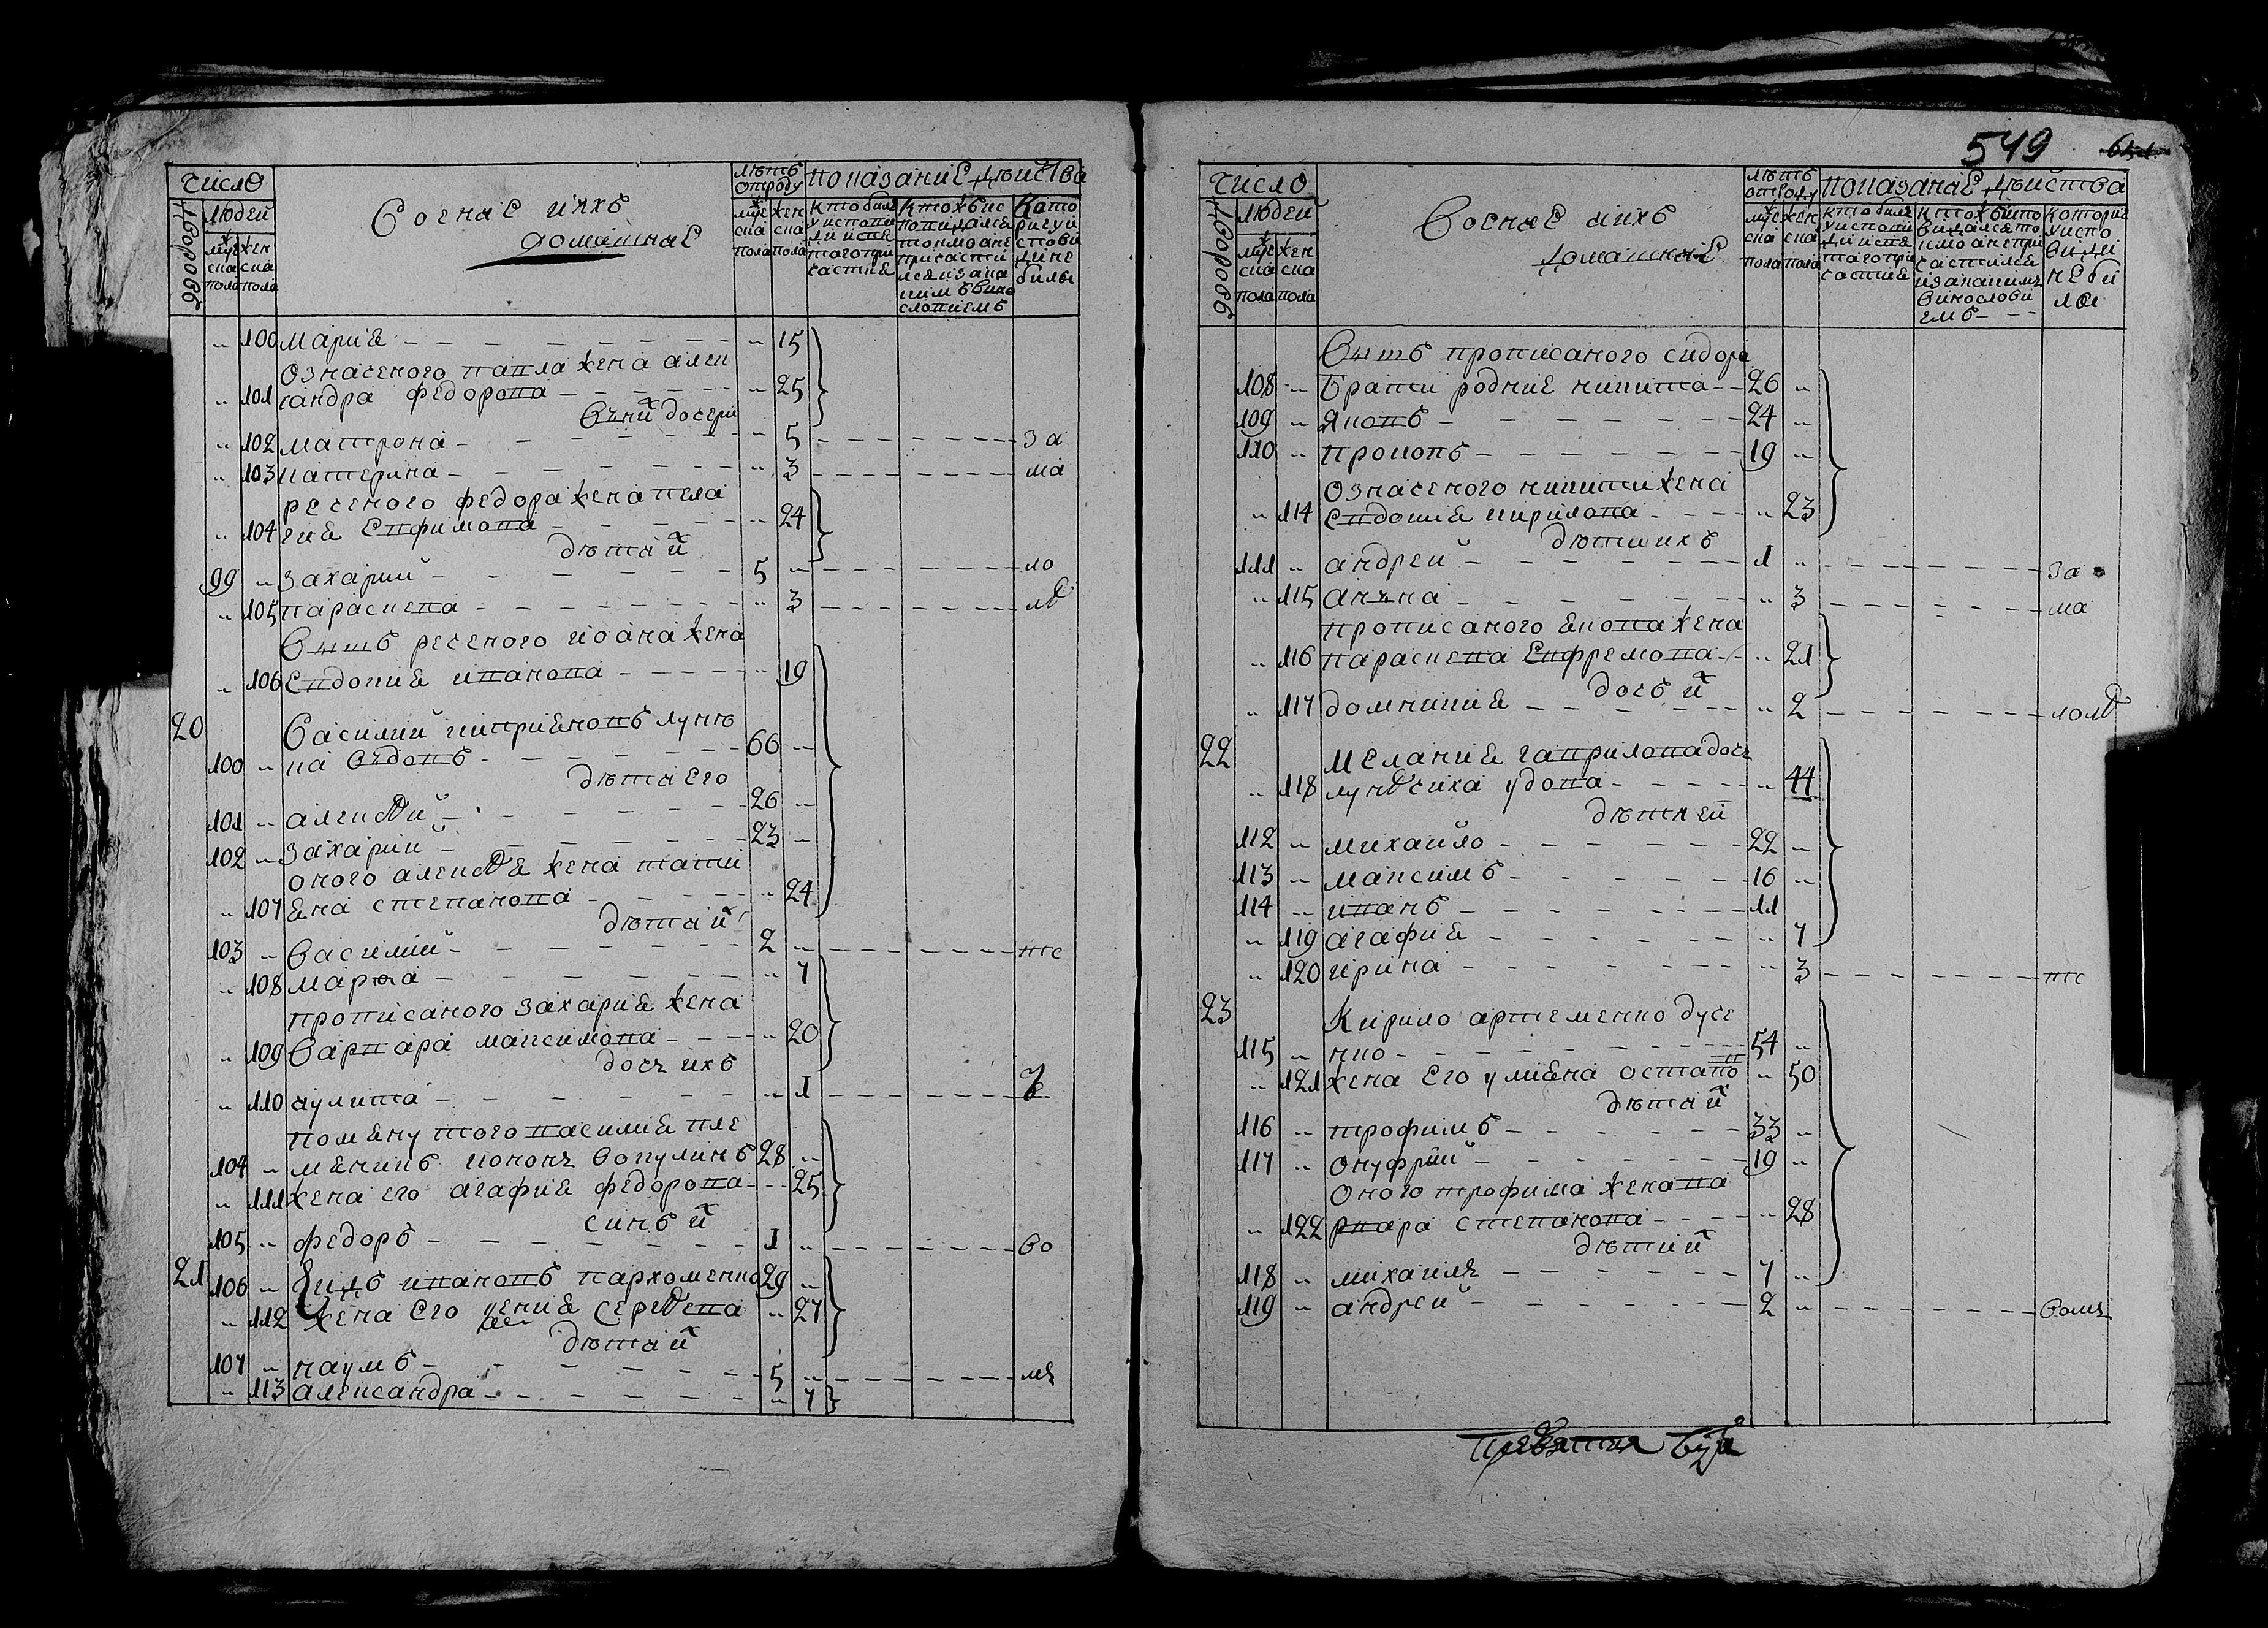 число
дворовъ
людей
муже
ска
пола
жен
ска
пола
Военае ихъ
домашнае
лѣтъ
отроду
муже
ска
пола
жен
ска
пола
показание действа
кто билъ
у исповѣ
ди и свя
таго при
частие
Кото
рие у и
спове
ди не
были
100 марие 15
означеного павла жена алек
101 сандра федорова 25
въни х дочери
102 матрона 5 за
103 катерина 3 ма
реченого федора жена пела
104 гие евфимова 24
дѣти и х
99 захарий 5 ло
105 параскева 3 лѣ
Вишъ реченого иоана жена
106 евдокие иванова 19
20 Василий киприеновъ лунѣ
100 ка въдовъ 66
дѣти его
101 алексѣй 26
102 захарий 23
оного алексѣе жена тати
107 ена степанова 24
дѣти и х
103 василий 2 тс
108 марѳа 7
прописаного захарие жена
109 варвара максимова 20
дочъ ихъ
110 иулита 1
помену того василие пле
104 меникъ кононъ вакулинъ 28
111 жена его агафие федорова 25
синъ и х
105 федоръ 1 во
21 106 иванов пархоменко 29
112 жена его ксение сергѣева 27
дѣти и х
107 наумъ 5 мъ
113 александра 7
549
число
дворовъ
людей
муже
ска
пола
жен
ска
пола
Военае ихъ
домашнае
лѣтъ
отроду
муже
ска
пола
жен
ска
пола
показание действа
кто билъ
у исповѣ
ди и свя
таго при
частие
которие
у испо
види
не би
ли
Вишъ прописаного сидора
108 брати родние никита 26
109 яковъ 24
110 прокопъ 19
означеного никити жена
114 евдокие кирилова 23
дѣти ихъ
111 андрей 1 за
115 анъна 3 ма
прописаного екова жена
116 параскева евфремова 21
дочъ и х
117 домникие 2 лолѣ
22 Мелание гаврилова дочъ
118 лунѣчиха удова 44
дѣти ей
112 михайло 22
113 максимъ 16
114 иванъ 11
119 агафие 7
120 ирина 3 тс
23 Кирило артеменко дуче
115 нко 54
121 жена его улиена остапо 50
дѣти и х
116 трофимъ 33
117 онуфрий 19
оного трофима жена ва
122 рвара степанова 28
дѣти и х
118 михаилъ 7
119 андрей 2 вомъ